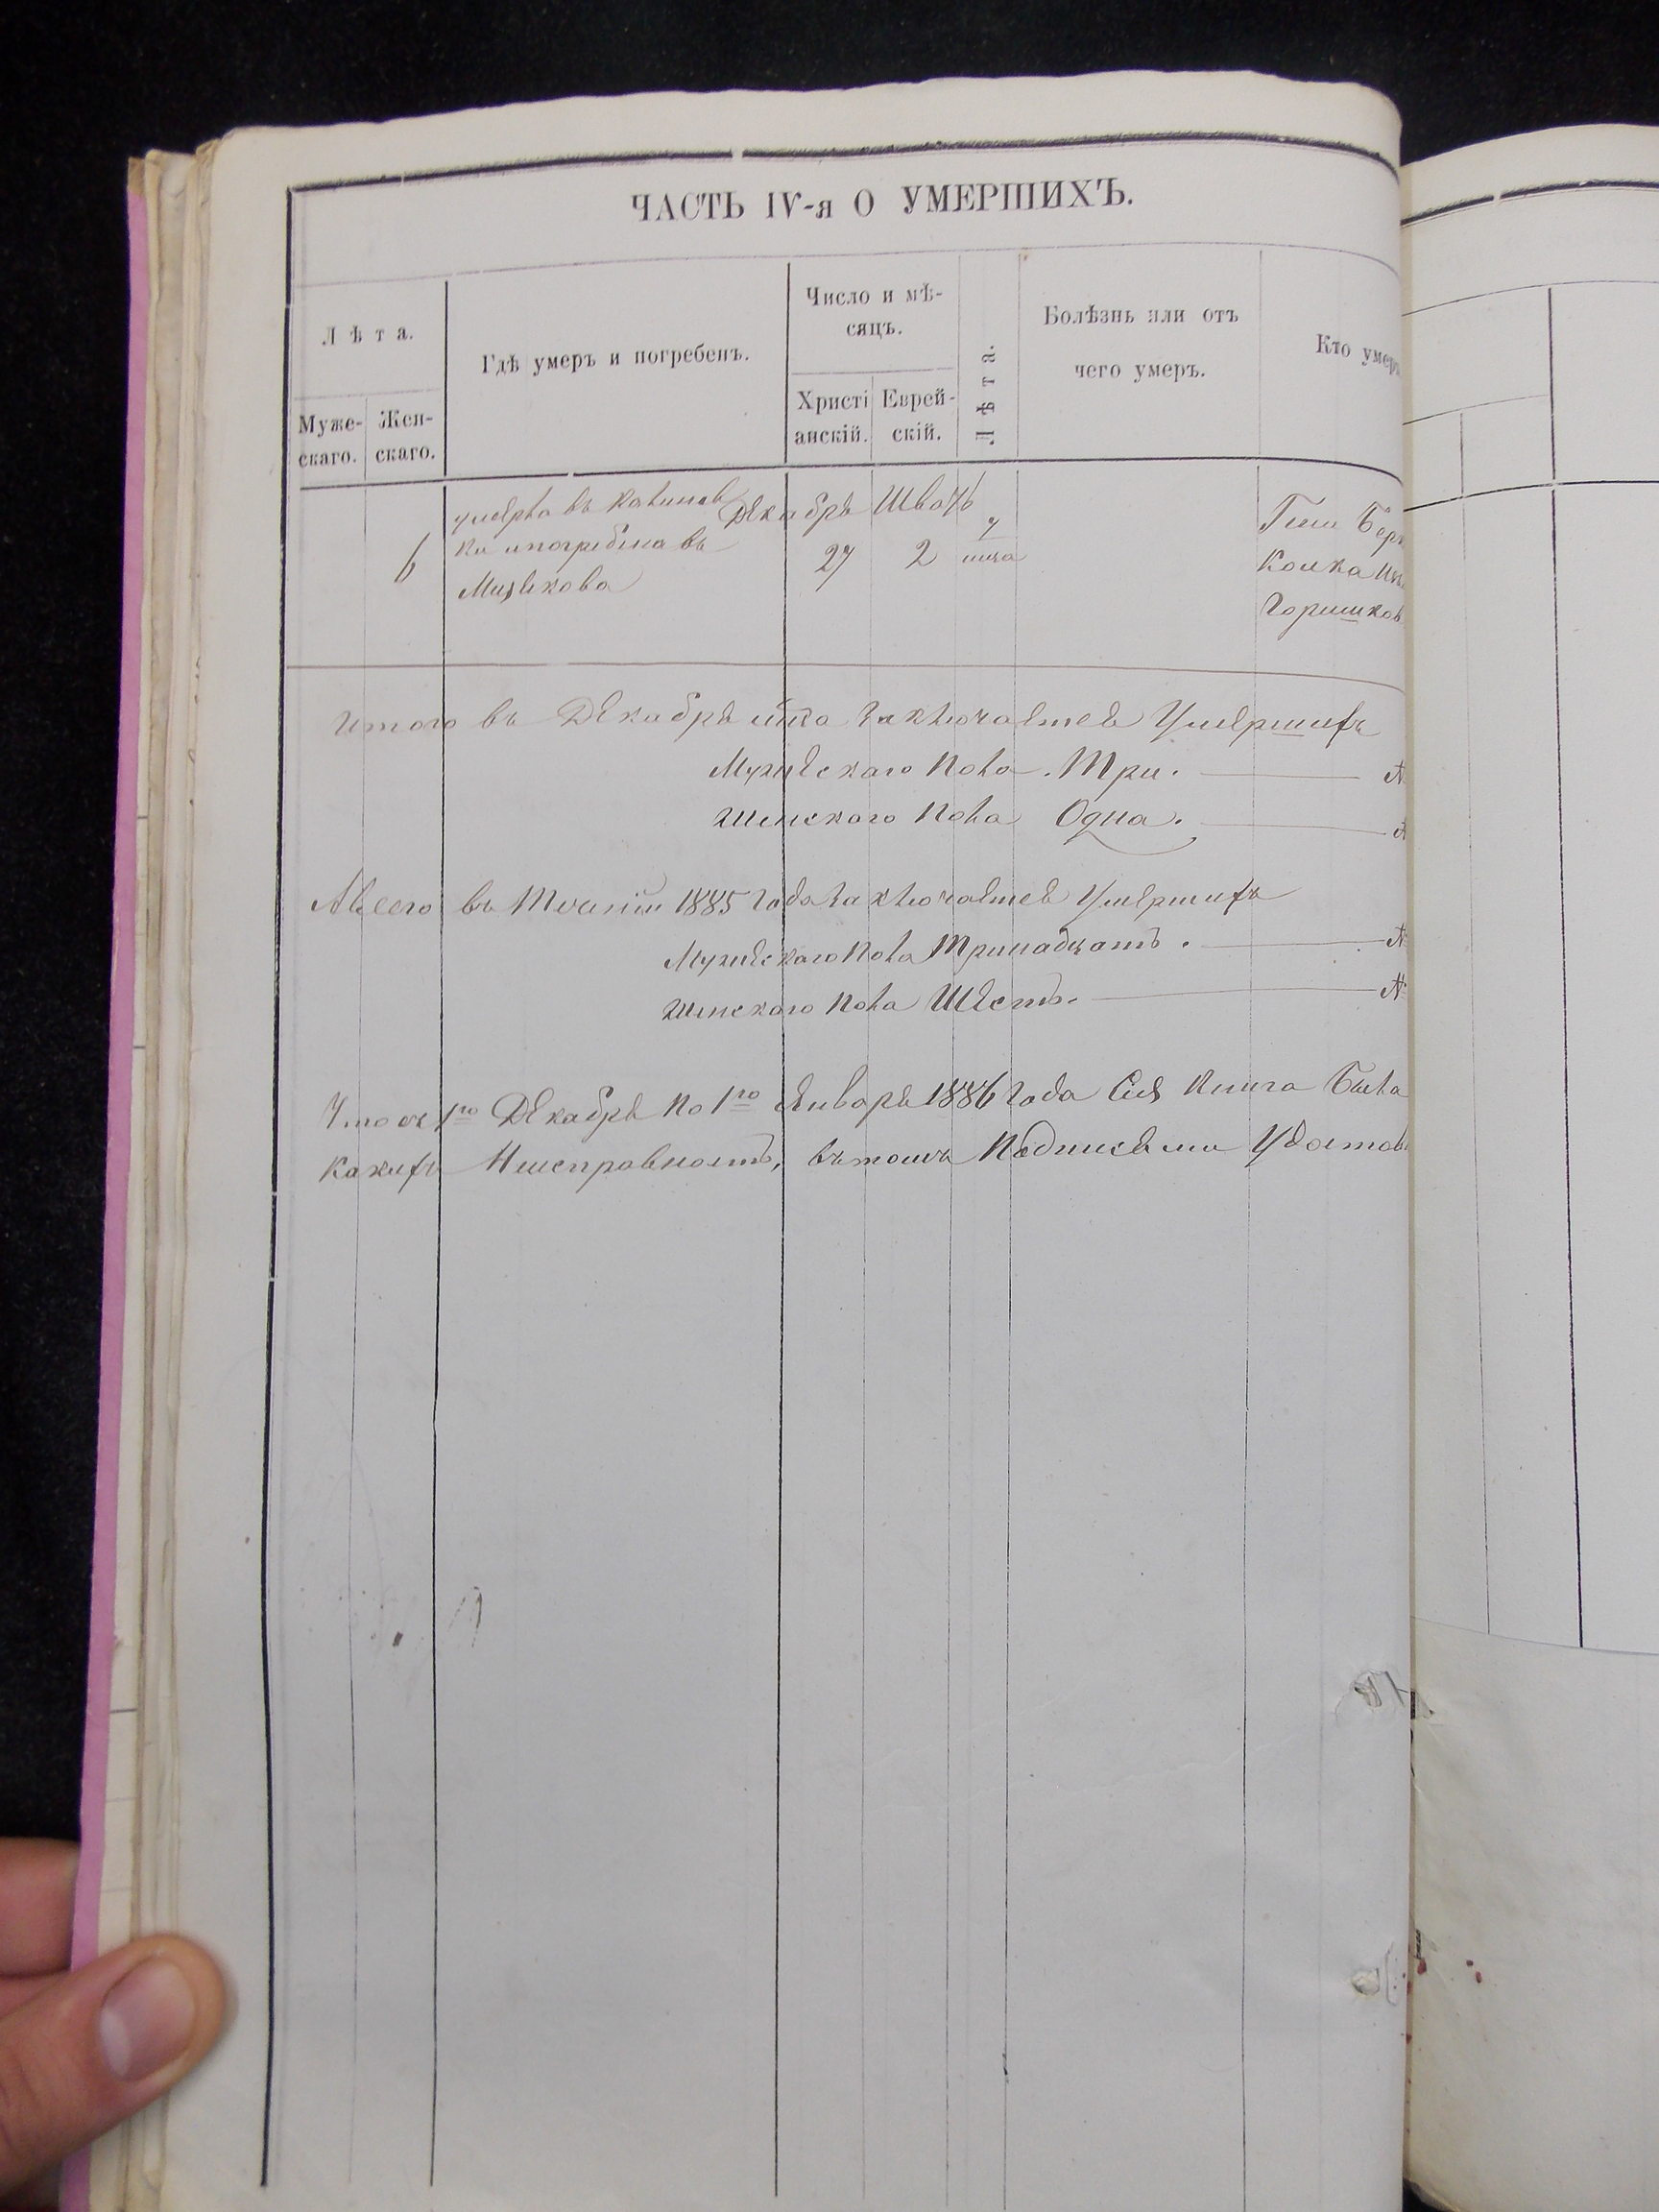 ЧАСТЬ IV-я О УМЕРШИХЪ.
Лѣта.
Муже-
скаго.
Жен-
скаго.
Гдѣ умеръ и погребенъ.
Число и мѣ-
сяцъ.
Христі
анскій.
Еврей-
скій.
Лѣта.
Болѣзнь или отъ
чего умеръ.
Кто умер
6
умерла въ Калинов
ки ипогребена въ
Декабря
27
Шватъ
2
Гени Бер
Горишков
Итого въ Декабрѣ заключается Умершихъ
Мужескаго пола. Три.
Женскаго пола Одна.
Авсего въ 1885 года заключается Умершихъ
Мужескаго пола Тринадцать.
Женскаго пола Шесть.
Что съ 1го Декабря по 1го Января 1886 года Сия Книга Была
какихъ Неисправность, вътомъ Подписями Удостов